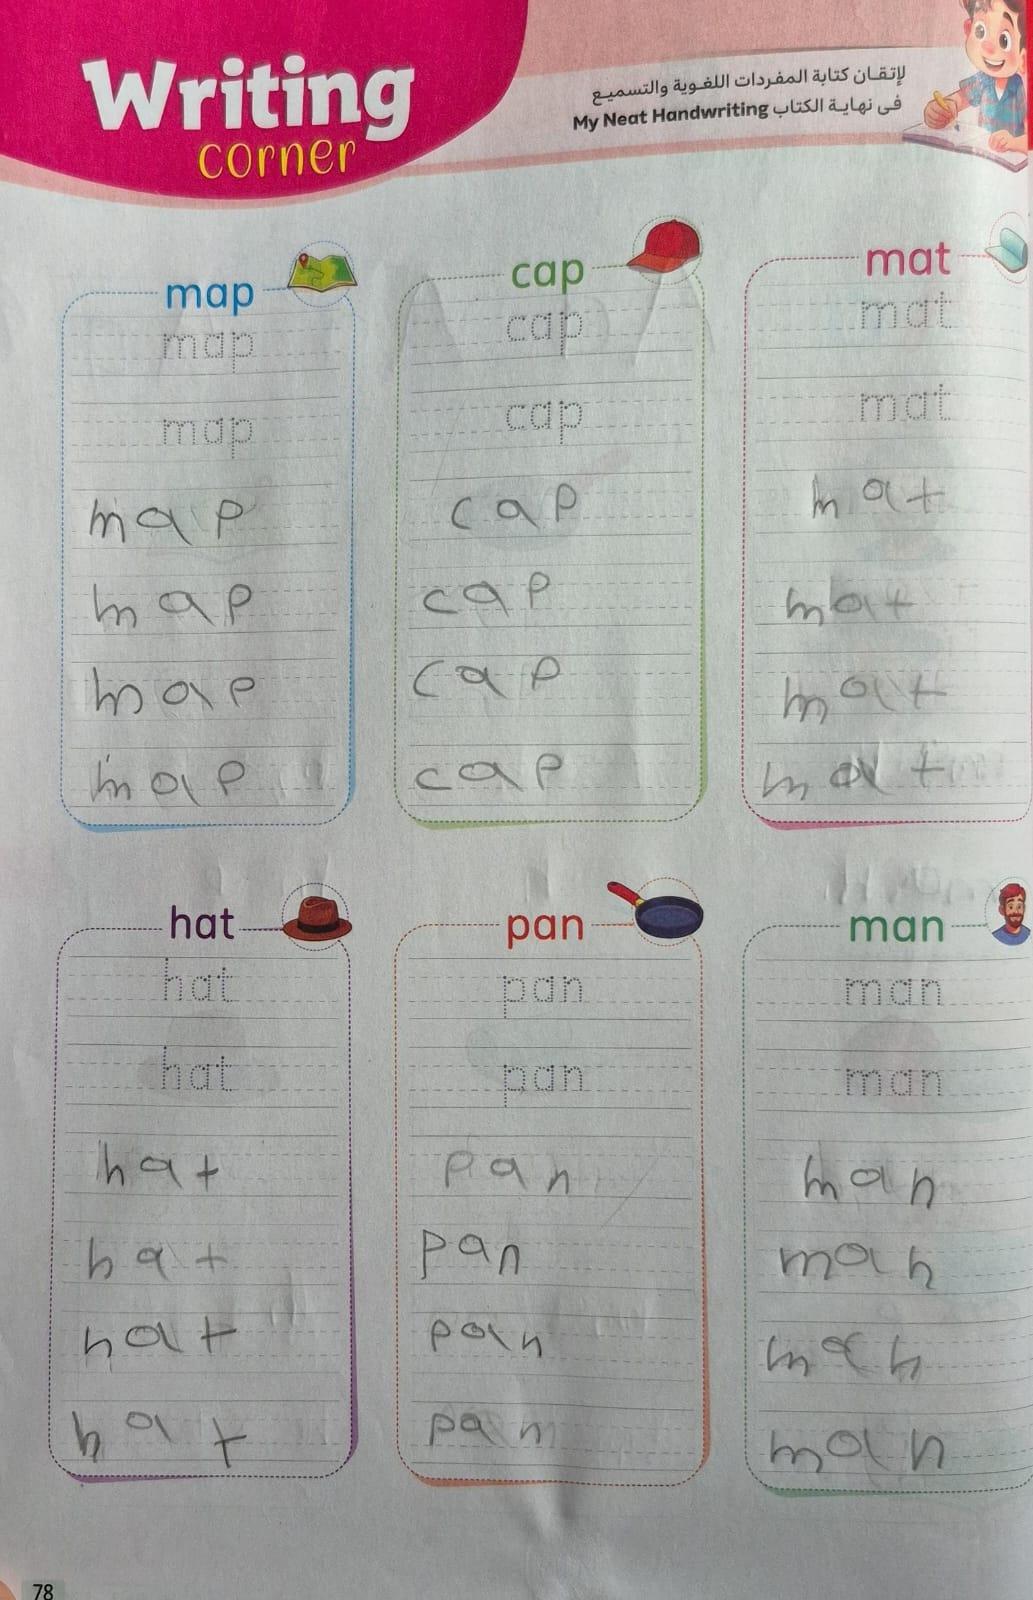 Writing
corner
لإتقان كتابة المفردات اللغوية والتسميع
فى نهاية الكتاب My Neat Handwriting
map
map
map
map
map
map
map
cap
cap
cap
cap
cap
cap
cap
mat
mat
mat
mat
mat
mat
mat
hat
hat
hat
hat
hat
hat
hat
pan
pan
pan
pan
pan
pan
pan
man
man
man
man
man
man
man
78